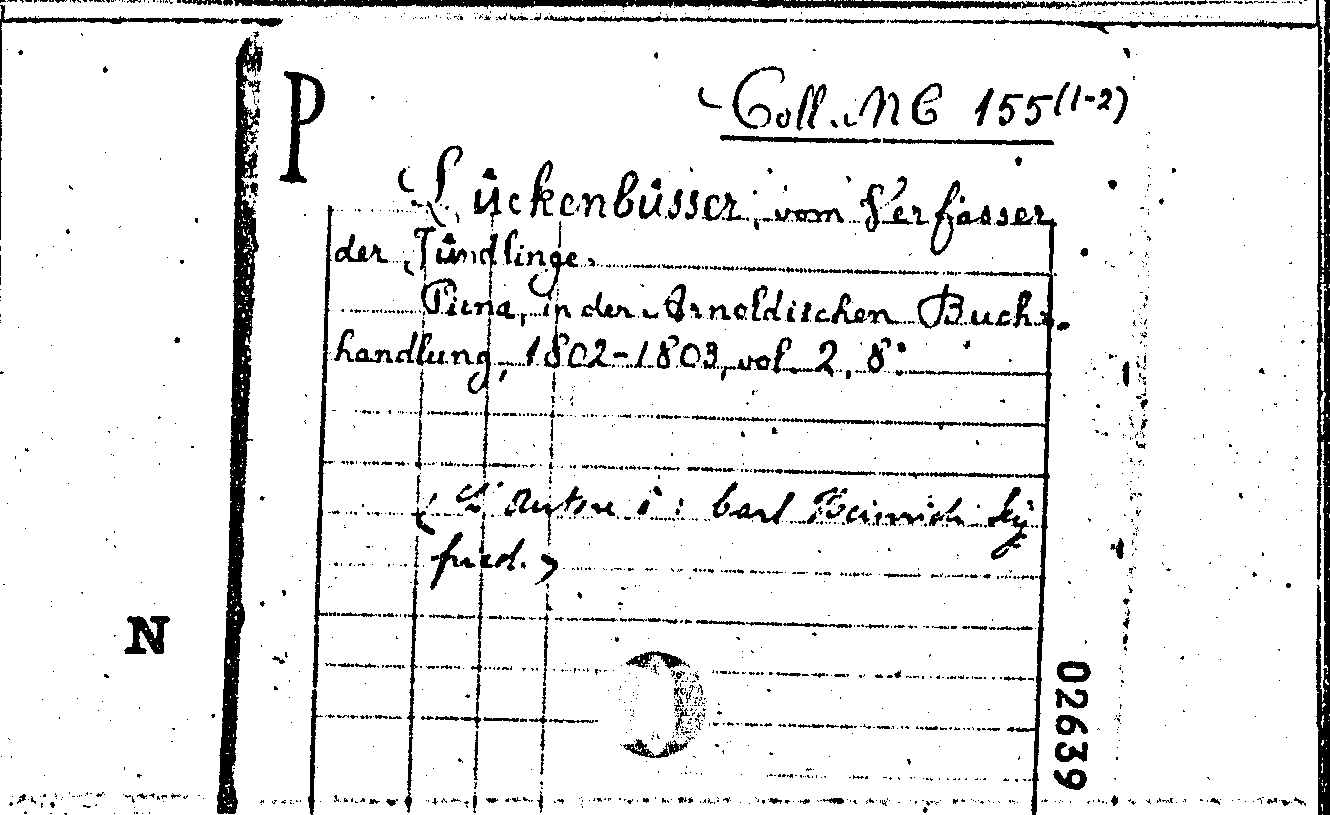 P
Coll. MC 155 (1-2)
Lückenbüsser, vom Verfasser
der Fündlinge.
Pirna, in der Arnoldischen Buch-
handlung, 1802-1803, vol. 2, 8°.
(L'auteur è: Carl Heinrich Sey
fried.)
N
02639